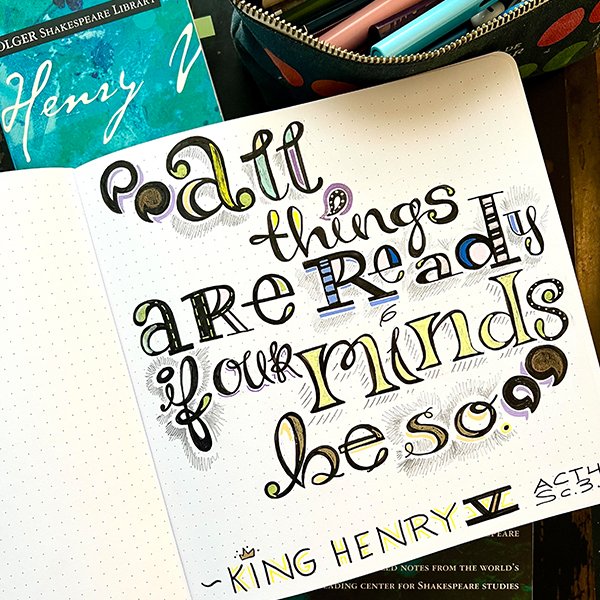 OLGER SHAKESPEARE LIBRARY
Henry V
“all
things
are Ready
if our minds
be so.”
~KING HENRY V
ACT 4
Sc. 3.
SPEARE
ED NOTES FROM THE WORLD'S
ADING CENTER FOR SHAKESPEARE STUDIES